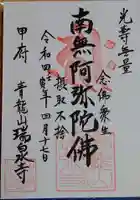 光寿無量
念佛衆生
南無阿弥陀佛
摂取不捨
令和四寅年四月十七日
甲府 青龍山瑞泉寺